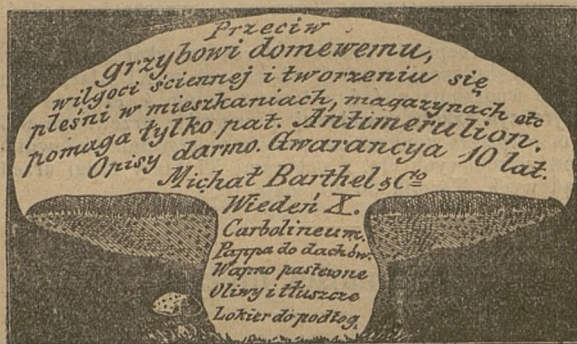 Przeciw
grzybowi domewemu,
wilgoci ściennej i tworzeniu się
pleśni w mieszkaniach, magazynach etc
pomaga tylko pat. Antimerulion.
Opisy darmo. Gwarancya 10 lat.
Michał Barthel & Cº
Wiedeń X.
Carbolineum.
Pappa do dachów.
Wapno pastewne
Oliwy i tłuszcze
Lokier do podłog.